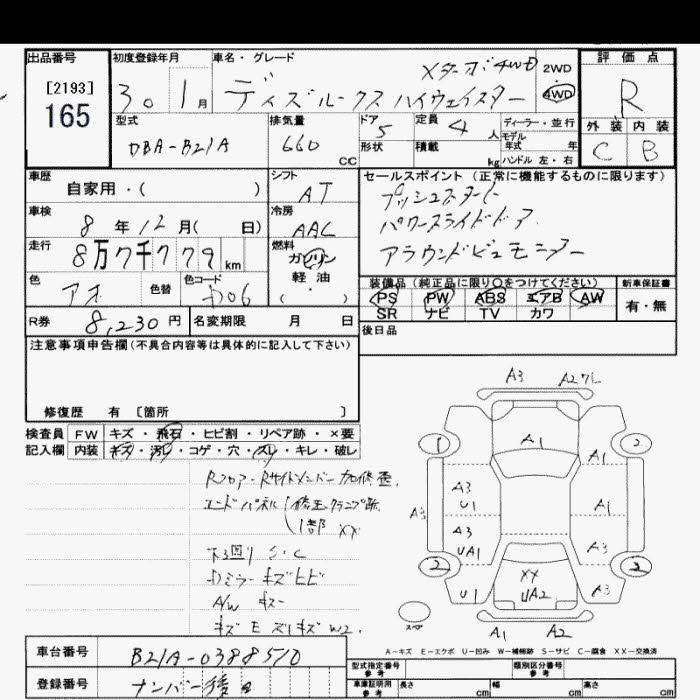 出品番号
[2193]
165
初度登録年月
30 1 月
車名・グレード
Xターボ4WD
ディズルークス ハイウェイスター
2WD
4WD
評価点
R
外装 内装
C B
型式
DBA-B21A
排気量
660
CC
ドア
5
形状
定員
4 人
積載
kg
ディーラー・並行
モデル
年式 年
ハンドル 左・右
車歴
自家用・( )
シフト
AT
セールスポイント (正常に機能するものに限ります)
プッシュスタート
パワースライドドア
アラウンドビューモニター
車検
8 年 12 月( 日)
冷房
AAC
走行
8万7千779 km
燃料
ガソリン
軽・油
( ・ )
色
アオ
色替
色コード
装備品 (純正品に限り○をつけてください)
PS PW ABS エアB AW
SR ナビ TV カワ
新車保証書
有・無
R券
8,230 円
名変期限 月 日
後日品
注意事項申告欄(不具合内容等は具体的に記入して下さい)
修復歴 有 [箇所 ]
検査員
記入欄
FW キズ・飛石・ヒビ割・リペア跡・×要
内装 キズ・汚レ・コゲ・穴・スレ・キレ・破レ
Rフロア・Rサイドメンバー 加修歪
エンドパネル 修正クランプ跡
1部 XX
下回り S・C
Dミラー キズヒビ
A/W キズ
A3 A2
1
A1
A3
U1
A1
A3
A3
UA1
A3
2
XX
UA2
2
U1
A3
A1 A2
スペア
A-キズ E-エクボ U-凹み W-補修跡 S-サビ C-腐食 XX-交換済
車台番号
B21A-0388510
登録番号
ナンバー後日
型式指定番号
参考
類別区分番号
参考
車庫証明用
参考
長さ cm 幅 cm 高さ cm